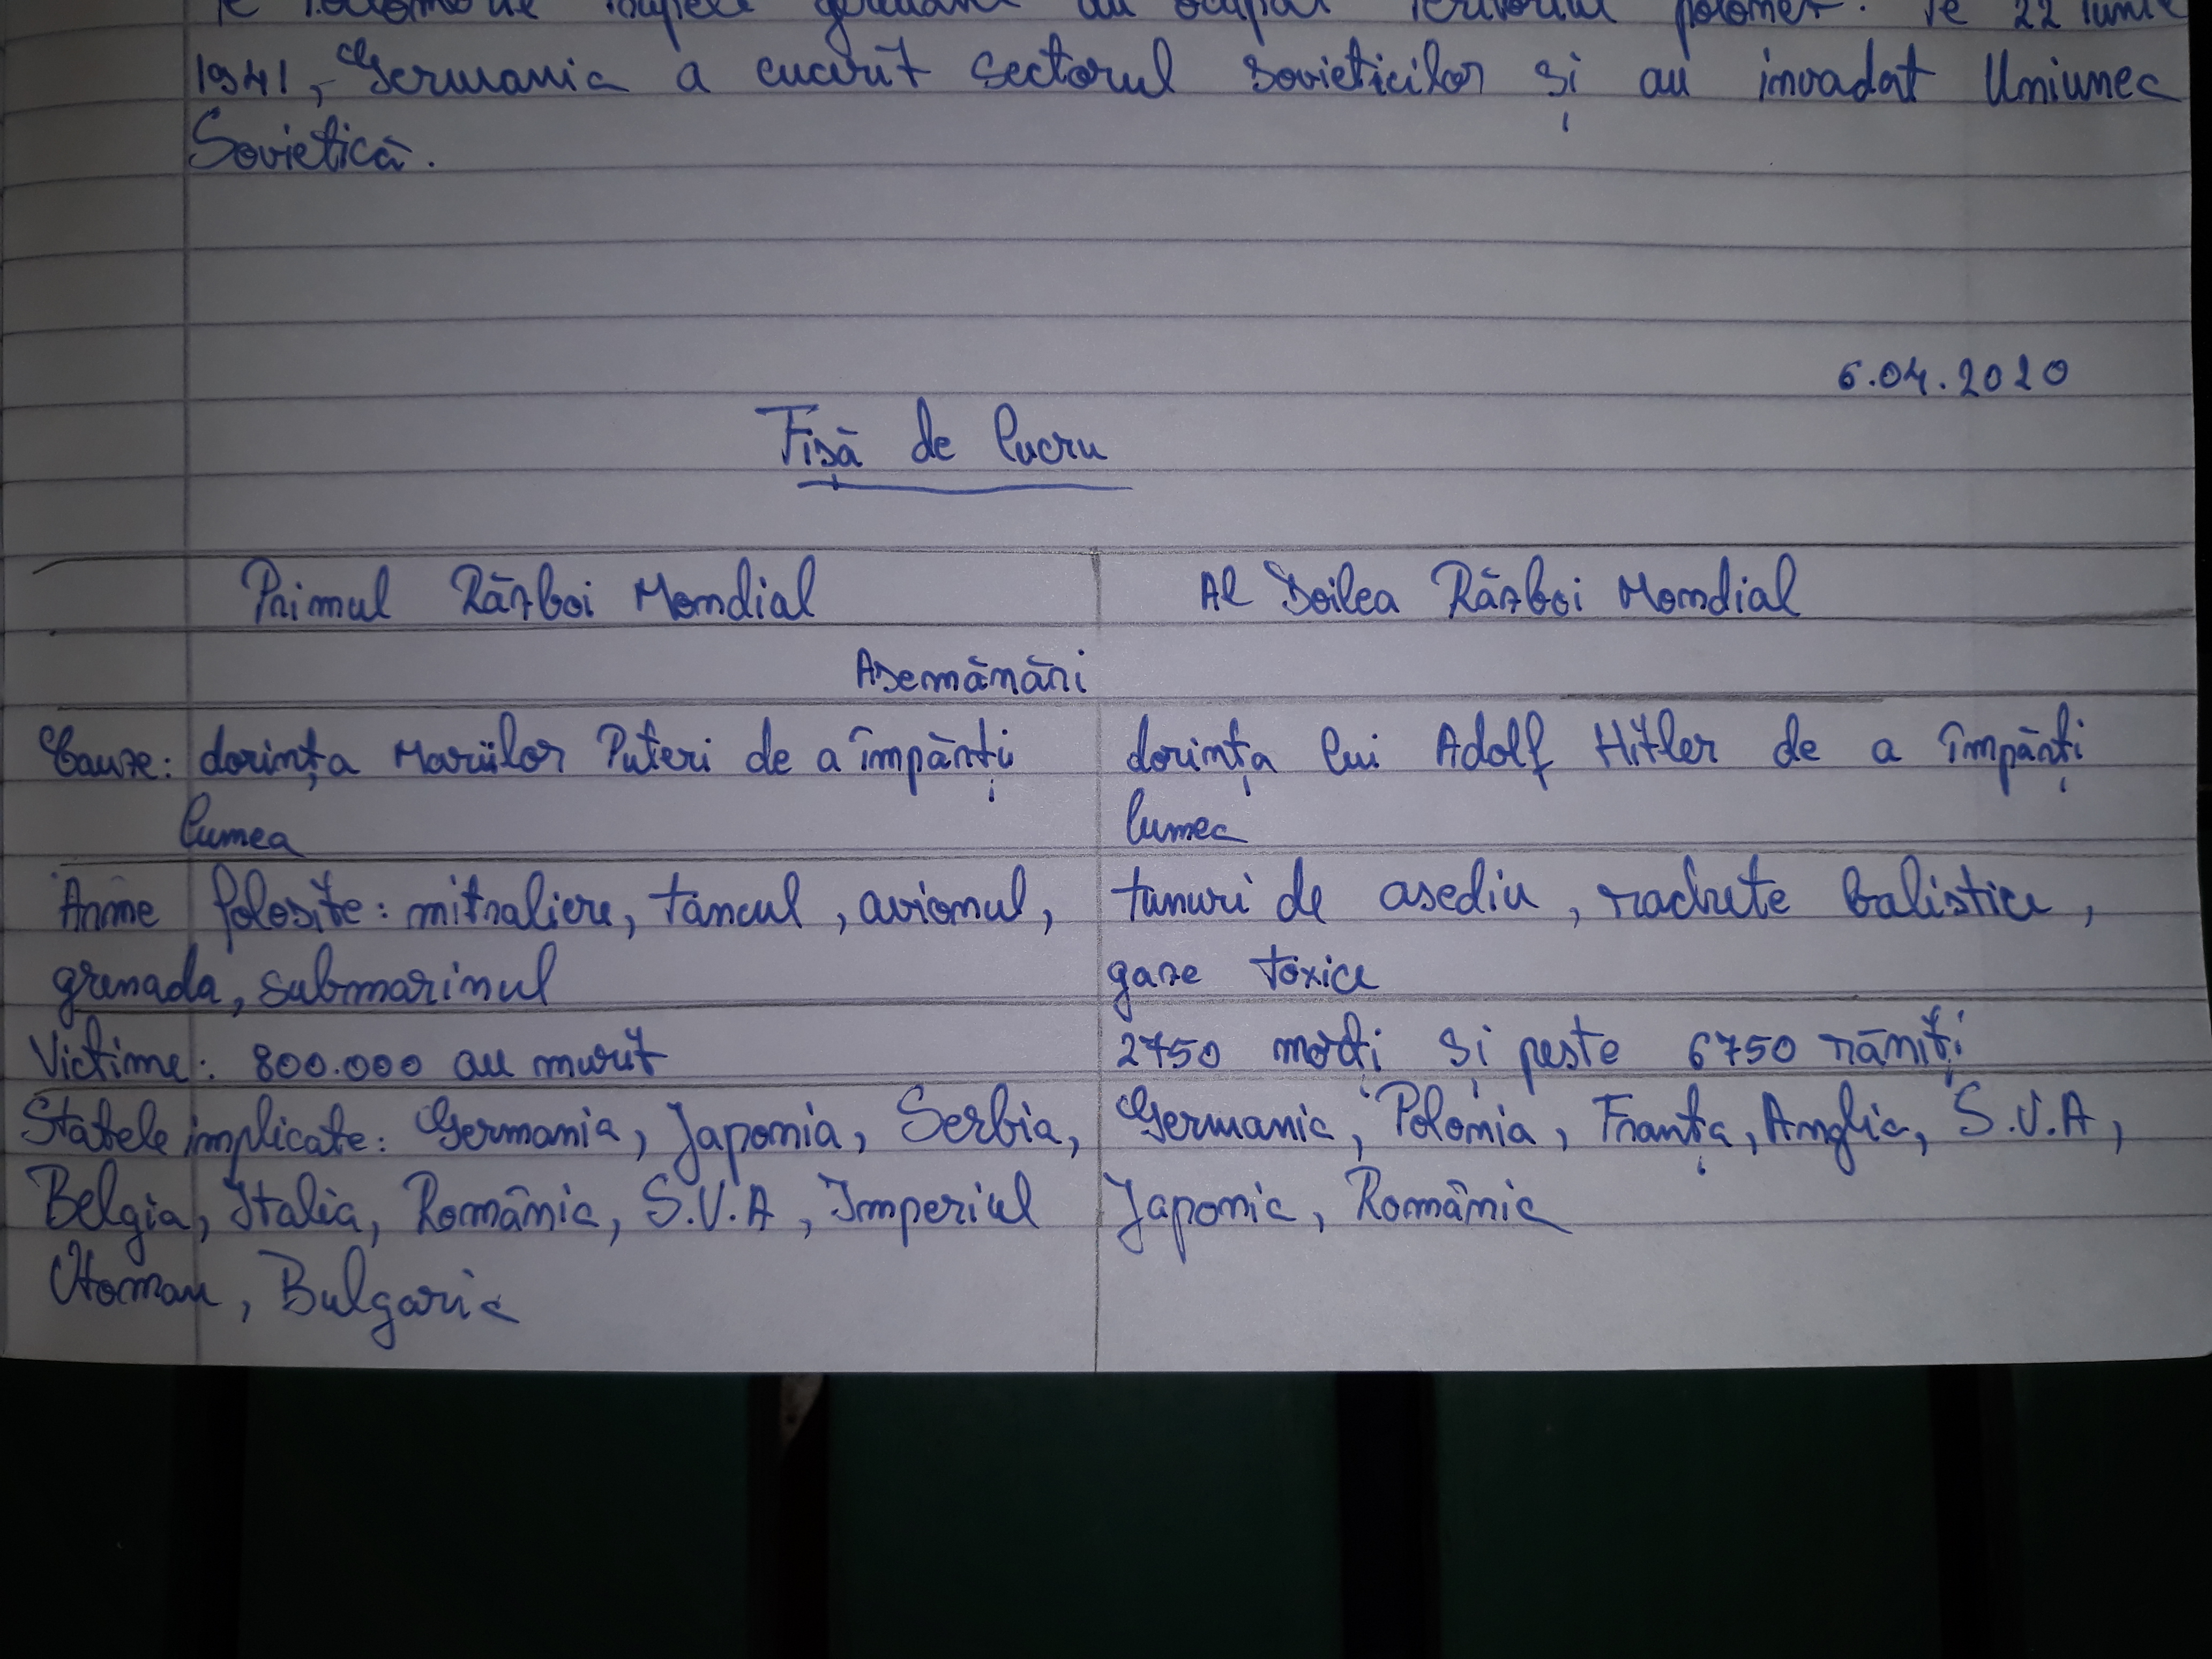 germane au ocupat teritoriul polonez. Pe 22 iunie
1941, Germania a cucerit sectorul sovieticilor și au invadat Uniunea
Sovietică.
6.04.2020
Fișă de lucru
Primul Război Mondial Al Doilea Război Mondial
Asemănări
Cauze: dorința Marilor Puteri de a împărți dorința lui Adolf Hitler de a împărți
lumea lumea
Arme folosite: mitraliere, tancul, avionul, tunuri de asediu, rachete balistice,
grenada, submarinul gaze toxice
Victime: 800.000 au murit 2750 morți și peste 6750 răniți
Statele implicate: Germania, Japonia, Serbia, Germania, Polonia, Franța, Anglia, S.U.A,
Belgia, Italia, România, S.U.A, Imperiul Japonia, România
Otoman, Bulgaria